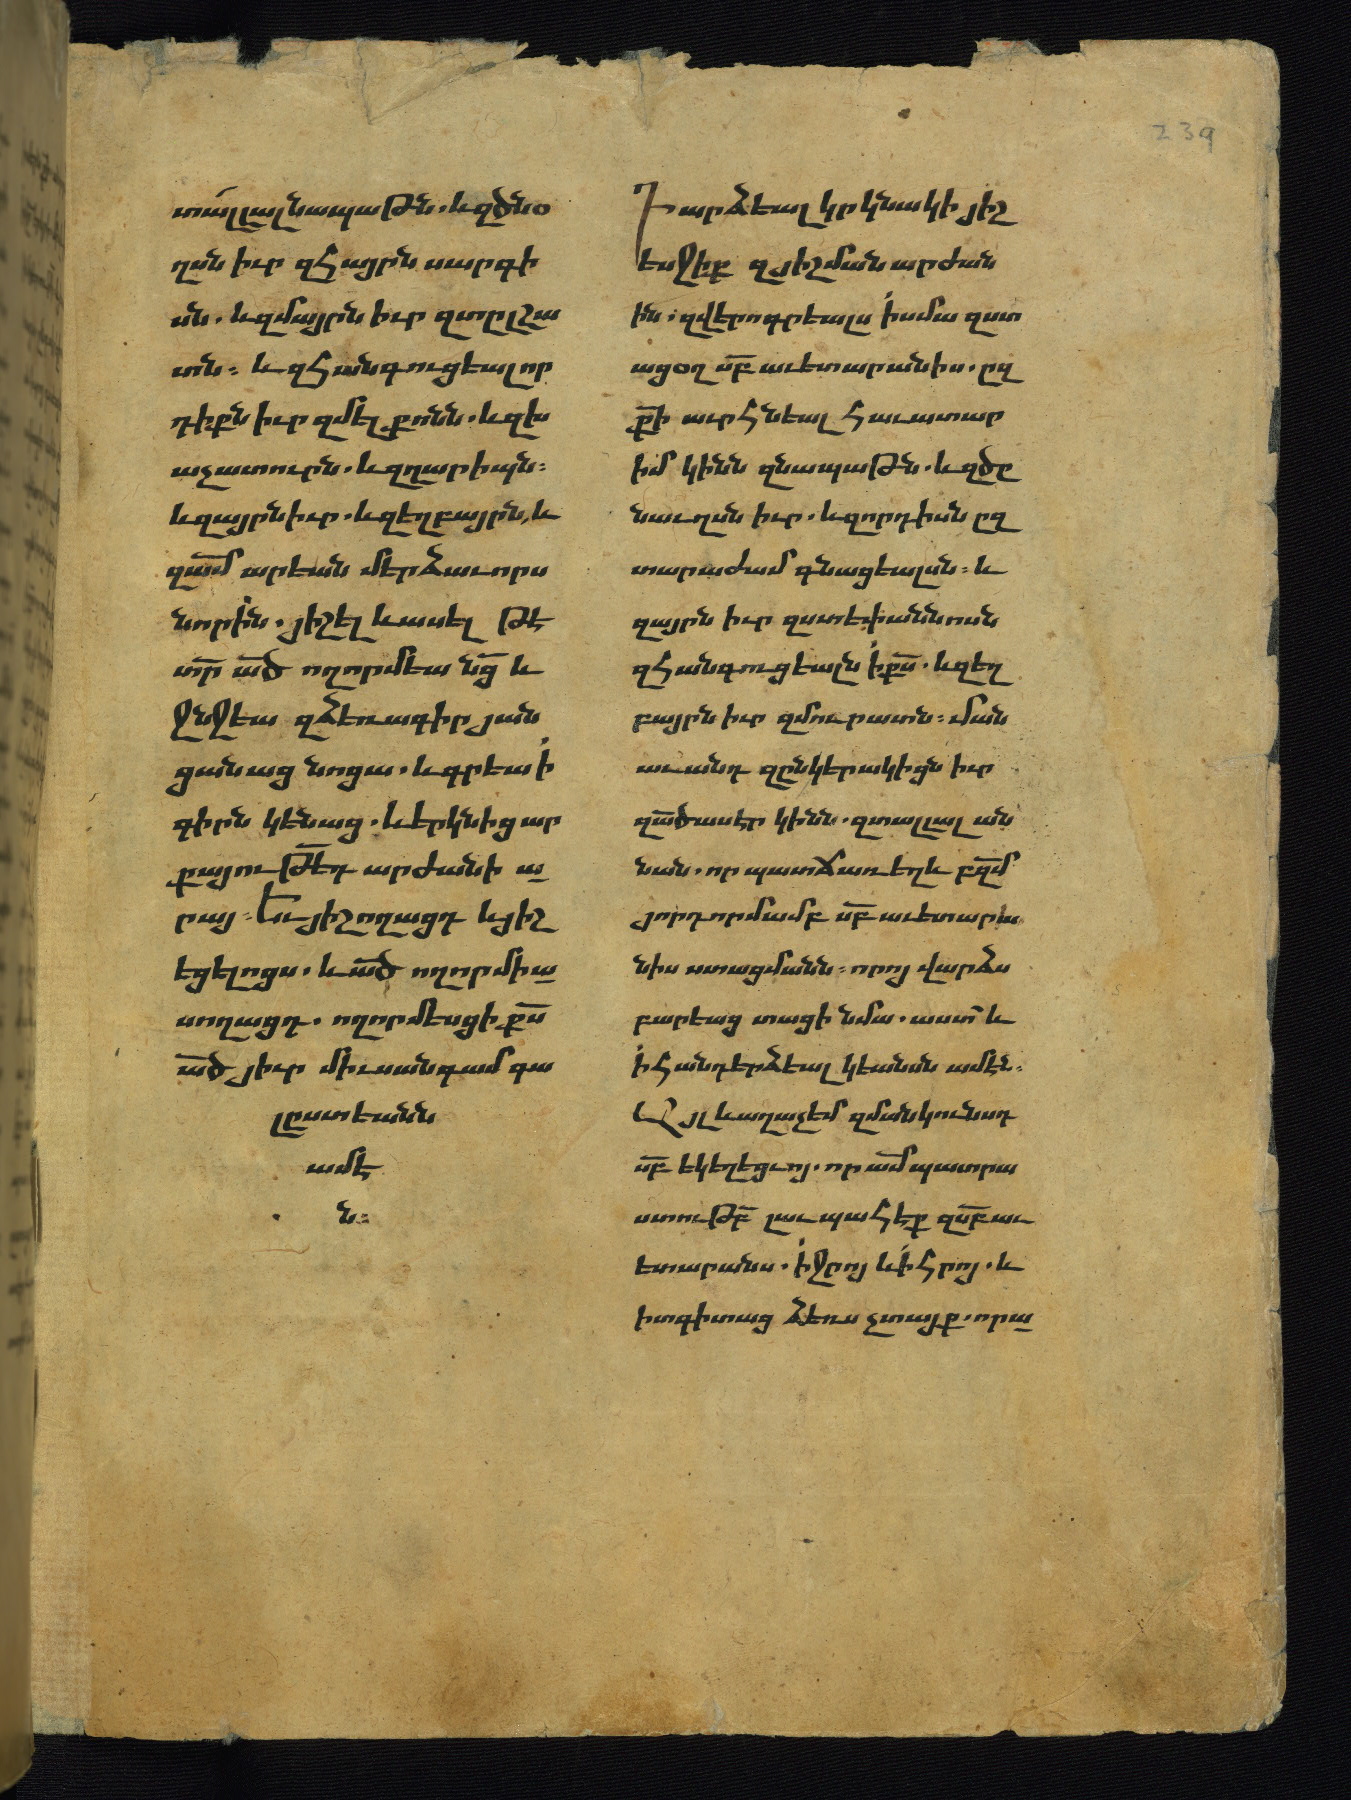 239
տալլալնապաթն. և զծնօ
ղսն իւր զհայրն սարգի
սն. և զմայրն իւր զտըլշա
տն: և զհանգուցեալ որ
դիքն իւր զմելքոնն. և զխ
աչատուրն. և զղարիպն:
և զայրն իւր. և զեղբայրն, և
զա̅մ արեան մերձաւորս
նորին. յիշել և ասել թէ
տր̅ ա̅ծ ողորմեա նց̅ և
ջնջեա զձեռագիր յան
ցանաց նոցա. և գրեա ի
գիրն կենաց. և երկնից ար
քայութե̅դ արժանի ա
րայ: Եւ յիշողացդ և յիշ
եցելոցս. և ա̅ծ ողորմիա
սողացդ. ողորմեսցի քս̅
ա̅ծ յիւր միւսանգամ գա
լըստեանն
ամէ
ն:
Դարձեալ կրկնակի յիշ
եսջիք զյիշման արժան
ին. զվերոգրեալս իսմա զստ
ացօղ սբ̅ աւետարանիս. ըզ
քի̅ աւրհնեալ հաւատար
իմ կինն զնապաթն. և զծը
նաւղսն իւր. և զորդիսն ըզ
տարաժամ գնացեալսն: և
զայրն իւր զստեփաննոսն
զհանգուցեալն ի քս̅. և զեղ
բայրն իւր զմուրատն: ման
աւանդ զընկերակիցն իւր
զա̅ծասէր կինն. զտալլալ ան
նան. որ պատճառ եղև բզ̅մ
յորդորմամբ սբ̅ աւետարա
նիս ստացմանն: որոյ վարձս
բարեաց տացի նմա. աստ և
ի հանդերձեալ կեանսն ամէն:
Այլ և աղաչեմ զմանկունսդ
սբ̅ եկեղեցւոյ. որ ա̅մ պատրա
ստութբ̅ լաւ պահէք զսբ̅ աւ
ետարանս. ի ջրոյ և ի հրոյ. և
ի տգիտաց ձեռս չտայք. որ ա